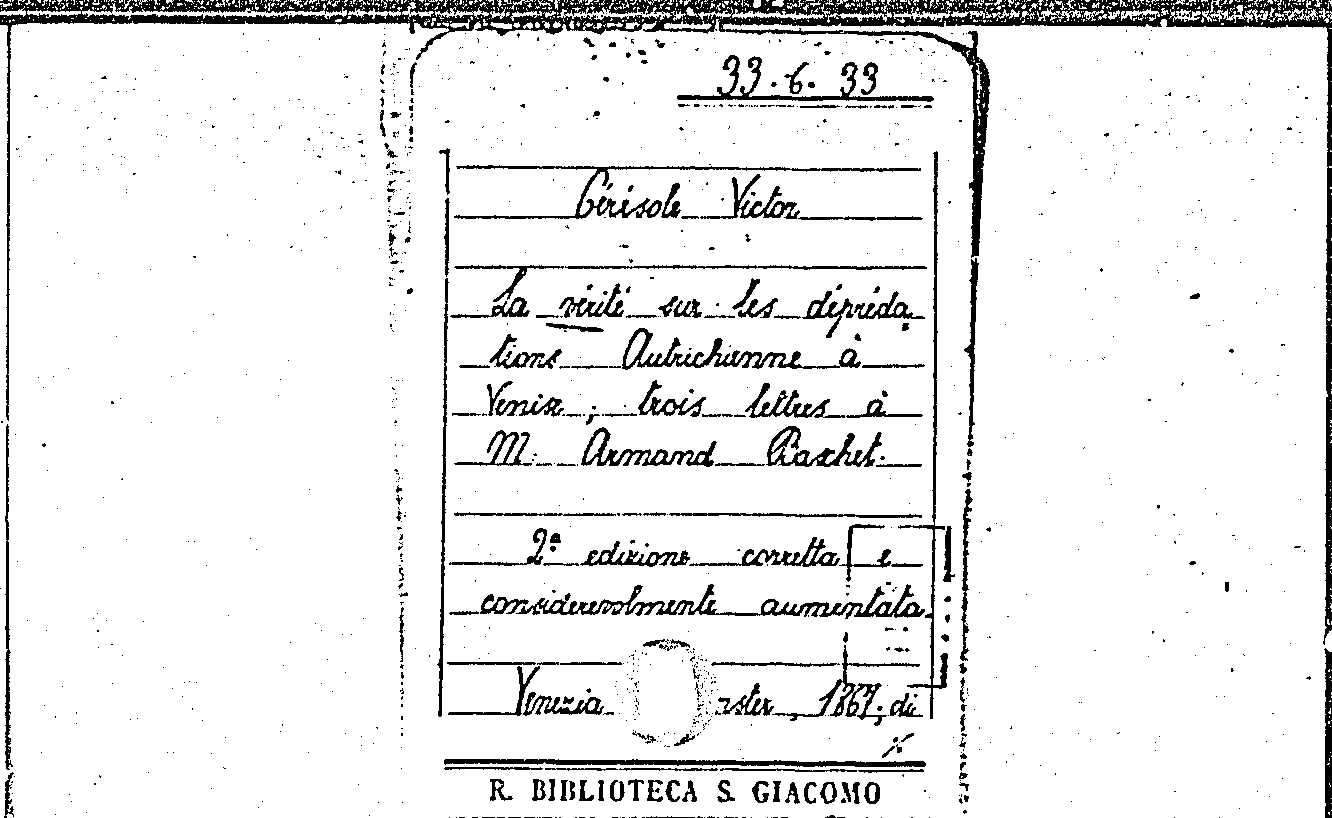 33.6.33
Cérésole Victor
La vérité sur les dépréda
tions Autrichienne à
Venise, trois lettres à
M. Armand Baschet.
2ª edizione corretta e
considerevolmente aumentata
Venezia , 1867, di
R. BIBLIOTECA S. GIACOMO